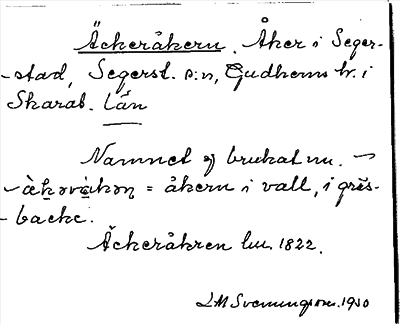 Äckeråkern. Åker i Seger-
-stad, Segerst. s:n, Gudhems hr. i
Skarab. län
Namnet ej brukat nu. ¬
= åkern i vall, i gräs-
-backe.
Äckeråkren lm. 1822.
LM Svenungsson. 1930